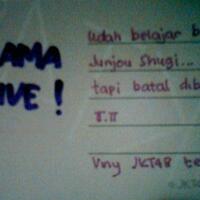 AMA
IVE !
Udah belajar b
Junjou Shugi...
tapi batal dib
T.T
Viny JKT48 te
©JKT4